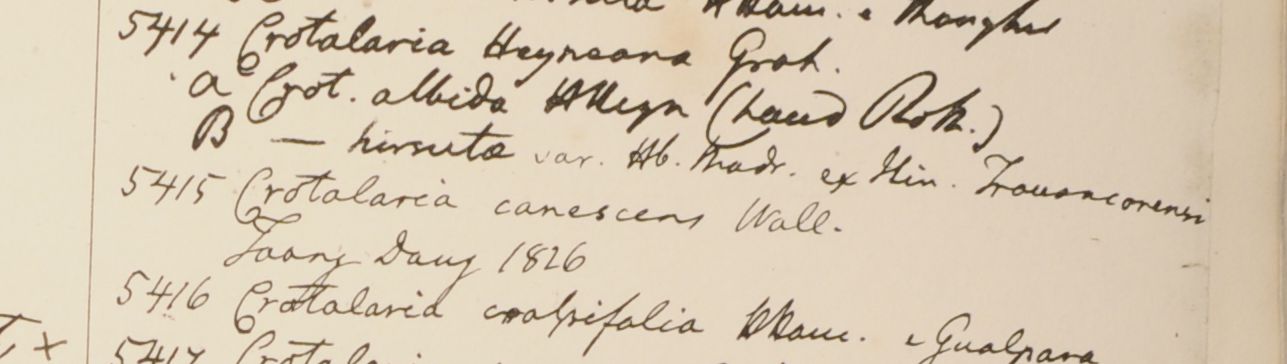 HHam. e Monghir
5414 Crotalaria Heyneana Grah.
a Crot. albida HHeyn (haud Roth.)
B — hirsuta var. Hb. Madr. ex Itin. Travancorensi
5415 Crotalaria canescens Wall.
Taong Daung 1826
5416 Crotalaria HHam. e Gualpara
5417 Crotalari